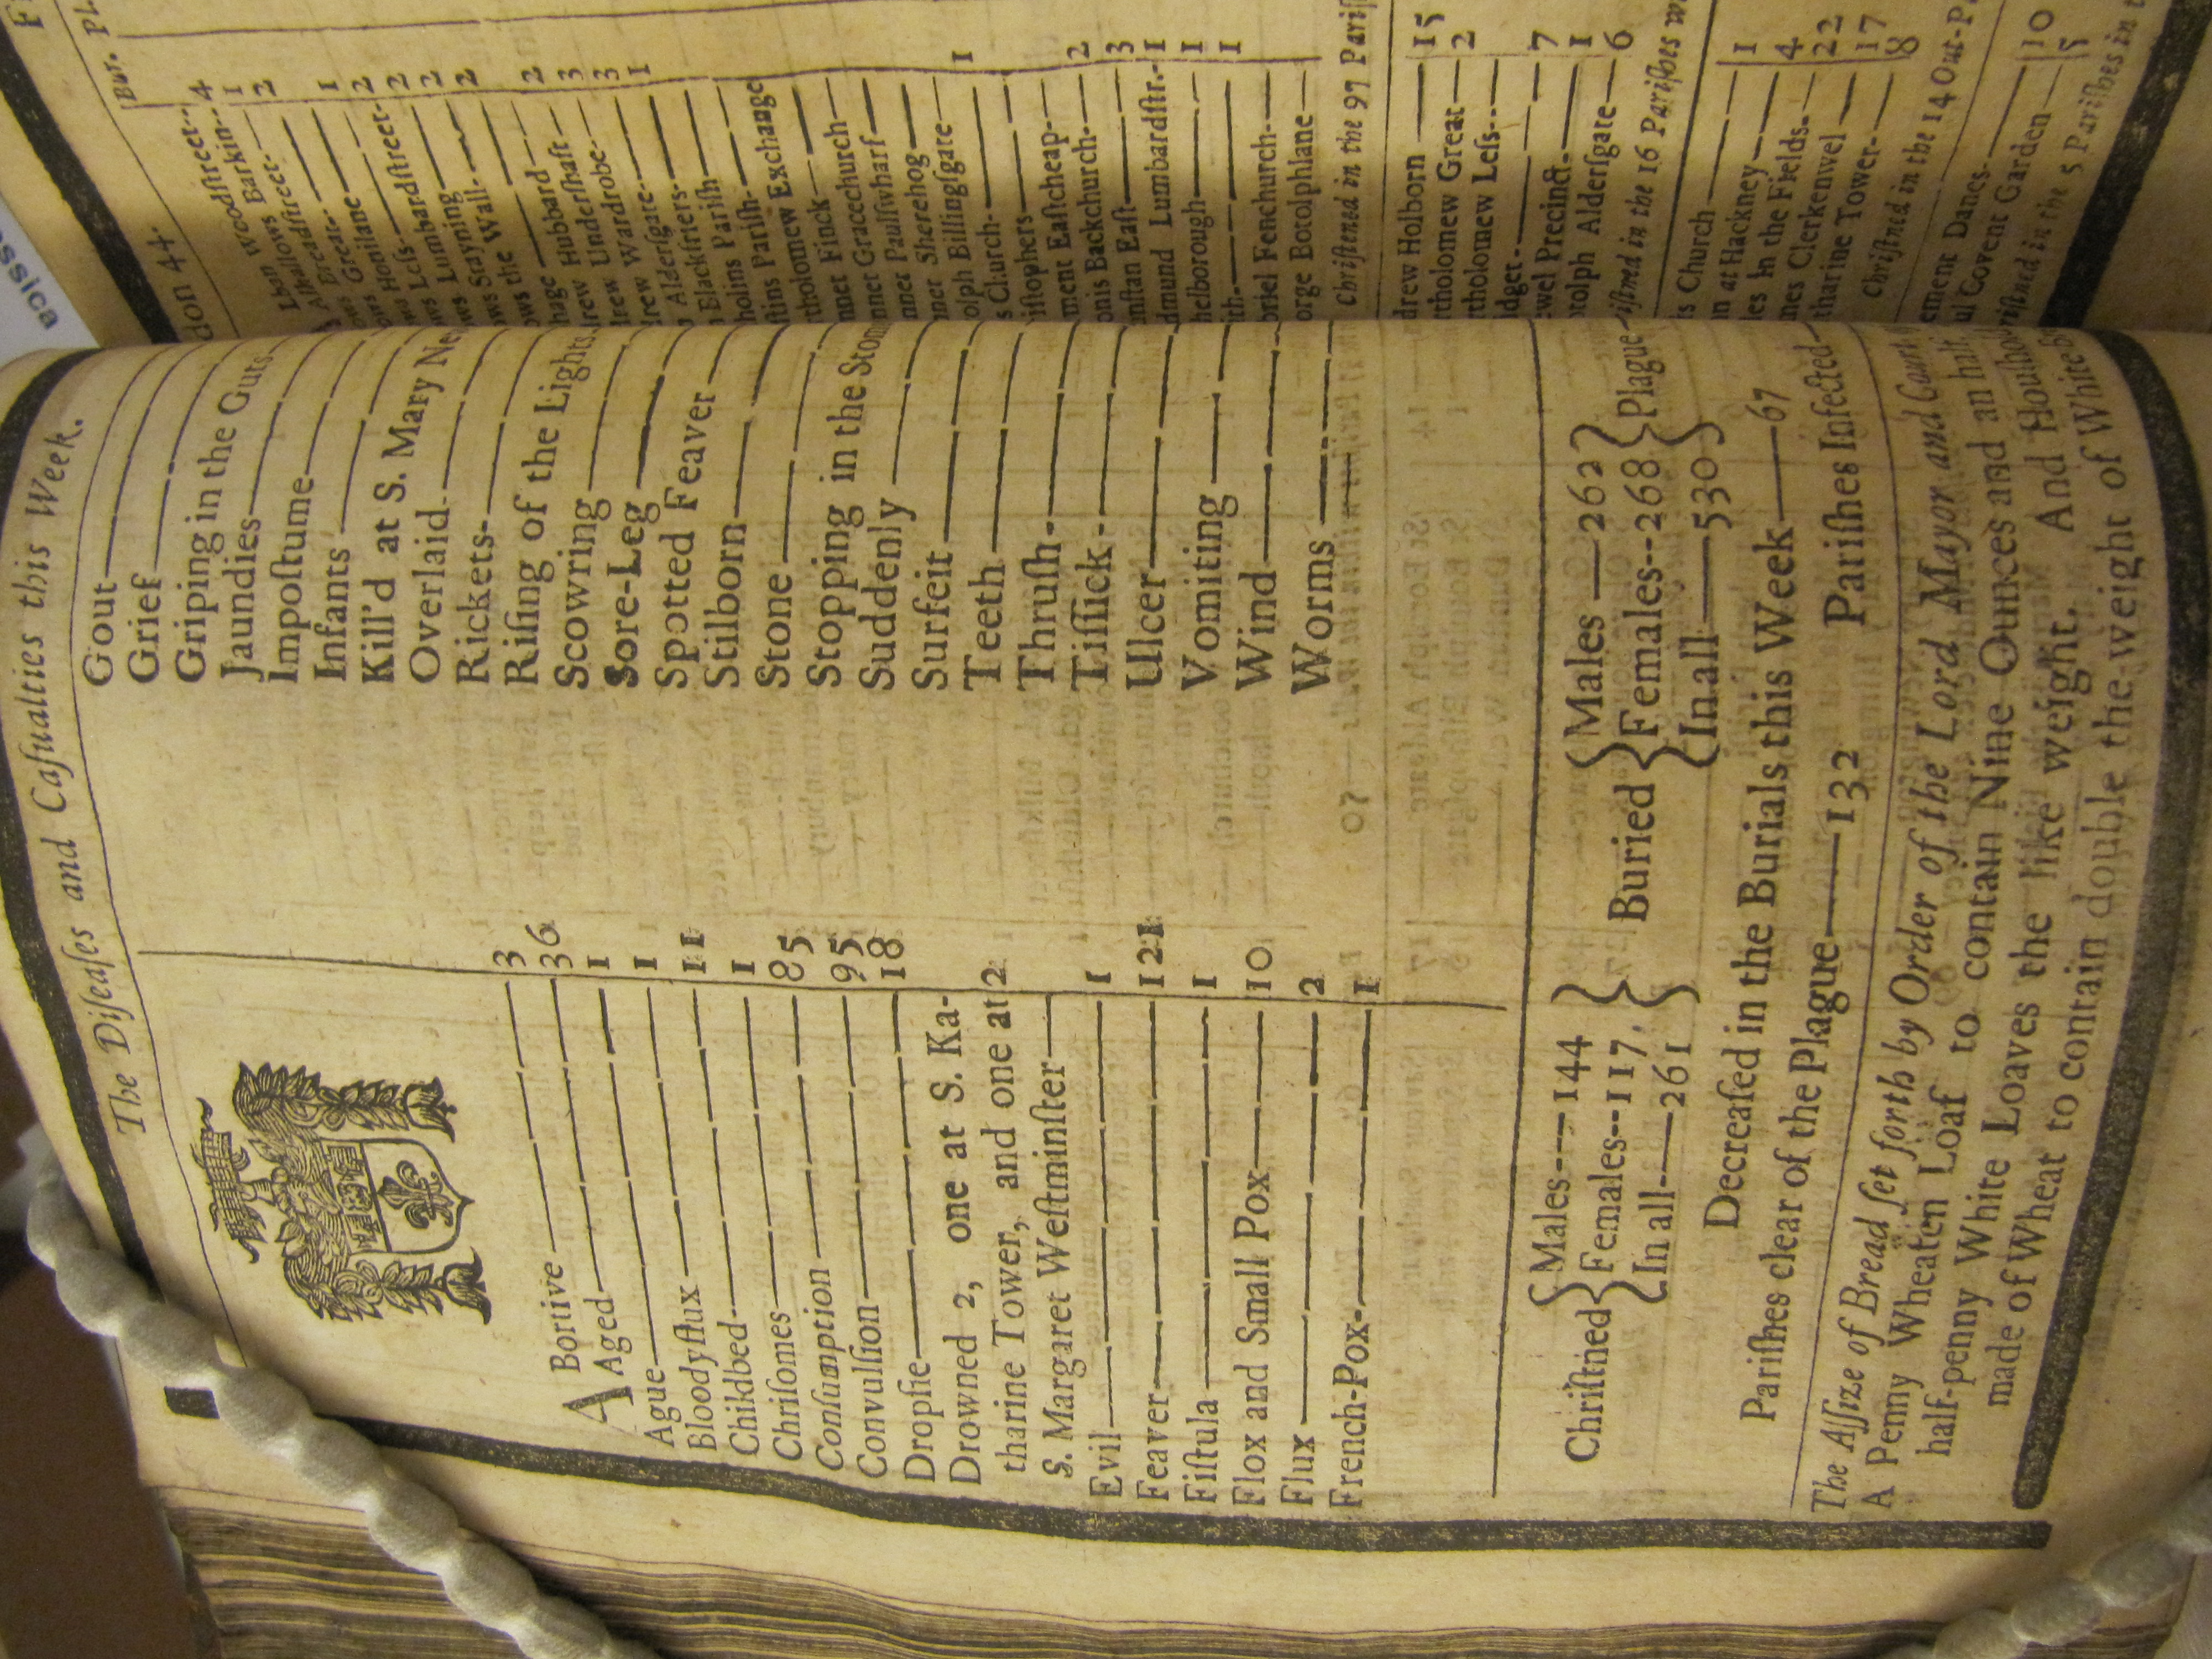 The Diſeaſes and Caſualties this Week.
ABortive 3
Aged 36
Ague 1
Bloodyflux 1
Childbed 11
Chriſomes 1
Conſumption 85
Convulſion 95
Dropſie 18
Drowned 2, one at S. Ka-
tharine Tower, and one at 2
S. Margaret Weſtminſter
Evil 1
Feaver 121
Fiſtula 1
Flox and Small Pox 10
Flux 2
French-Pox 1
Gout
Grief
Griping in the Guts
Jaundies
Impoſtume
Infants
Kill'd at S. Mary Ne
Overlaid
Rickets
Riſing of the Lights
Scowring
Sore-Leg
Spotted Feaver
Stilborn
Stone
Stopping in the Stom
Suddenly
Surfeit
Teeth
Thruſh
Tiſſick
Ulcer
Vomiting
Wind
Worms
Chriſtned
Males 144
Females 117.
In all 261
Buried
Males 262
Females 268
In all 530
Plague
Decreaſed in the Burials this Week 67
Pariſhes clear of the Plague 132 Pariſhes Infected
The Aſſize of Bread ſet forth by Order of the Lord Mayor and Court
A Penny Wheaten Loaf to contain Nine Ounces and an half,
half-penny White Loaves the like weight. And Houſho
made of Wheat to contain double the weight of White
don 44.
Bur. Pl
lban Woodſtreet 4
lhallows Barkin 1
lhallows Breadſtreet 2
Great
ows Gr
ows Honilane 1
ows Leſs 2
ows Lumbardſtreet 2
ows Stayning 2
ows the Wall 2
hage
drew Hubbard 2
drew Underſhaft 3
rew Wardrobe 3
Alderſgate 1
Blackfriers
holins Pariſh
ſtins Pariſh
rtholomew Exchange
nnet Finck
nnet Gracechurch
nner Paulſwharf
nner Sherehog
olph Billingſgate 1
s Church
iſtophers
ment Eaſtcheap 2
onis Backchurch 3
nſtan Eaſt 1
dmund Lumbardſtr. 1
helborough 1
ith
briel Fenchurch
orge Botolphlane
Chriſtned in the 97 Pariſ
drew Holborn 15
rtholomew Great 2
rtholomew Leſs
idger 7
ewel Precinct 1
tolph Alderſgate 6
iſtned in the 16 Pariſhes w
s Church 1
n at Hackney 4
les In the Fields 22
mes Clerkenwel 17
tharine Tower 8
Chriſtned in the 14 Out-P
ement Danes 10
ul Covent Garden 5
riſtned in the 5 Pariſhes in t